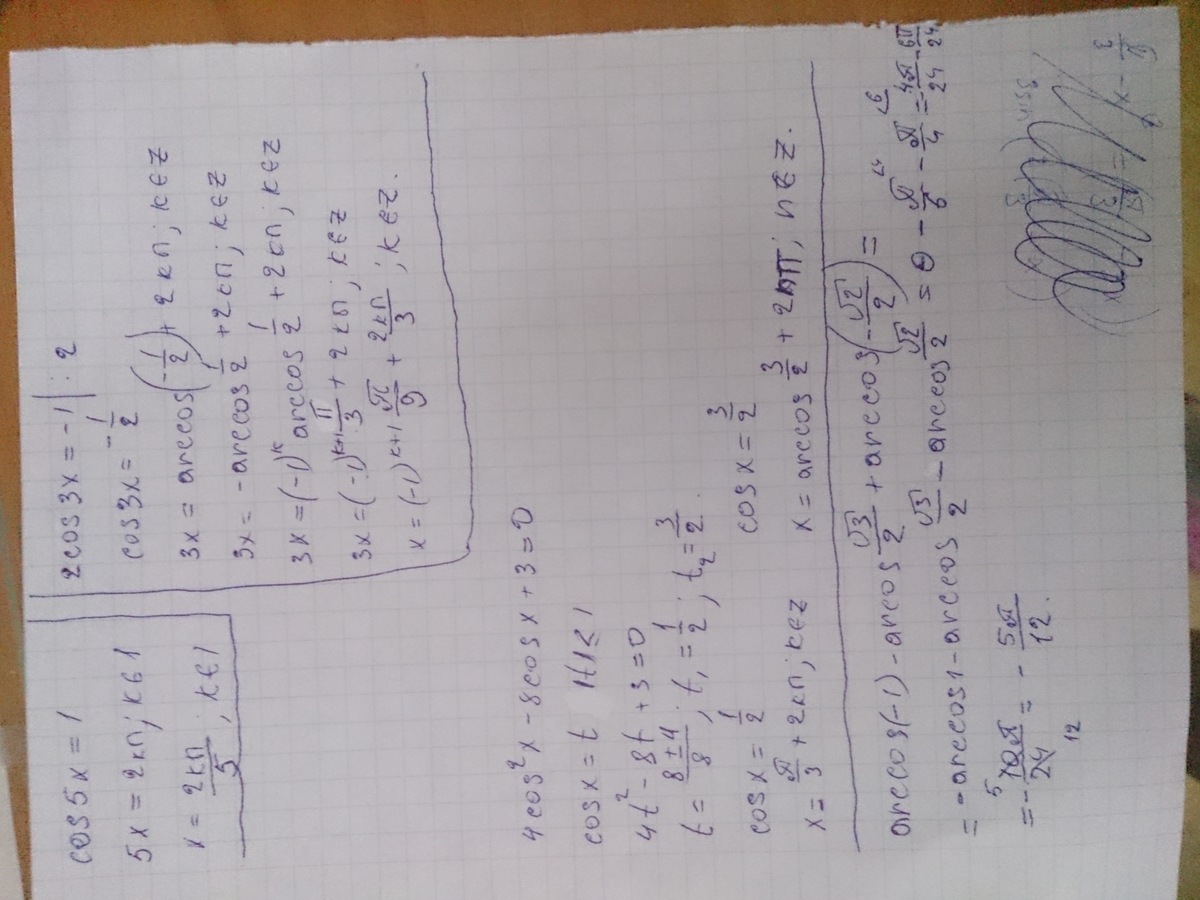 cos 5x = 1
5x = 2kπ; k∈1
x = 2kπ/5; k∈1
2cos3x = -1 | : 2
cos3x = -1/2
3x = arccos(-1/2) + 2kπ; k∈Z
3x = -arccos 1/2 + 2kπ; k∈Z
3x = (-1)^k arccos 1/2 + 2kπ; k∈Z
3x = (-1)^(k+1) π/3 + 2kπ; k∈Z
x = (-1)^(k+1) π/9 + 2kπ/3; k∈Z.
4cos²x - 8cosx + 3 = 0
cosx = t |t|≤1
4t² - 8t + 3 = 0
t = (8±4)/8; t₁ = 1/2; t₂ = 3/2.
cosx = 1/2 cosx = 3/2
x = π/3 + 2kπ; k∈Z x = arccos 3/2 + 2πn; n∈Z.
arccos(-1) - arcos √3/2 + arccos(-√2/2) =
= -arccos1 - arccos √3/2 - arccos √2/2 = 0 - π/6 - π/4 = 4π/24 - 6π/24
= -10π/24 = -5π/12.